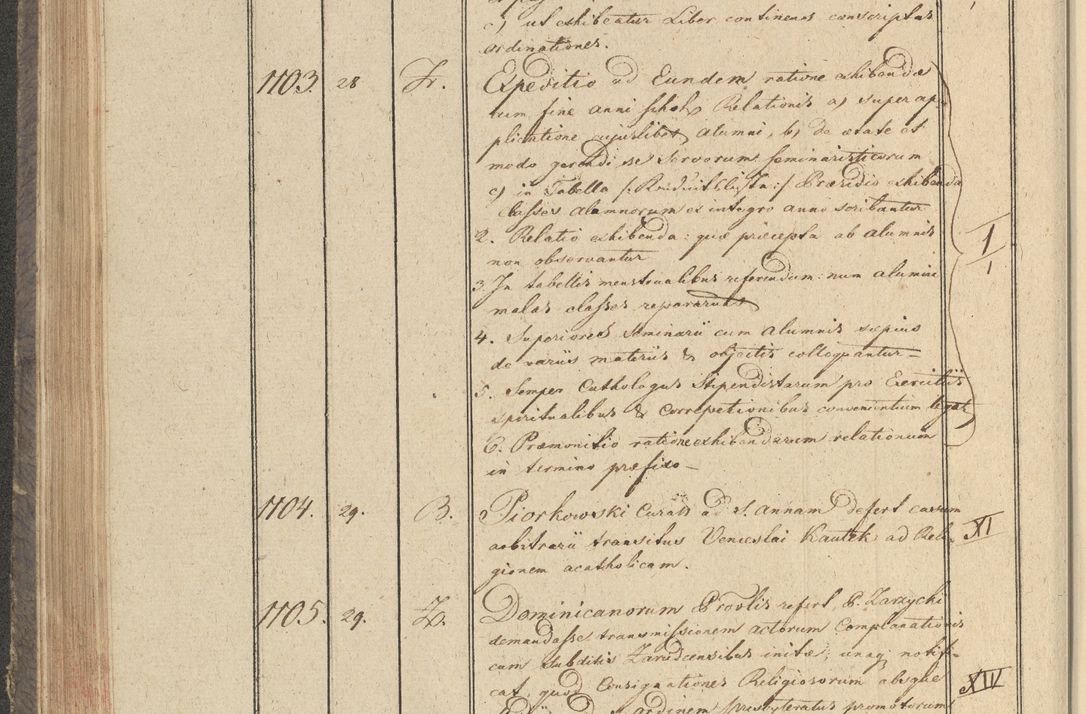 c) ut exhibeatur Liber continens conscriptas
ordinationes.
1103. 28 Fr. Expeditio ad Eundem ratione exhibendæ
cum fine anni schol. Relationis a) super ap-
plicatione cujuslibet alumni, b) de ætate et
modo gerendi se servorum seminaristicorum
c) in Tabella Præsidio exhibenda
classes alumnorum ex integro anno scribantur
2. Relatio exhibenda: quæ præcepta ab alumnis
non observantur
3. In tabellis menstrualibus referendum: num alumni
malas classes repararunt
4. Superiores Seminarii cum alumnis sæpius
de variis materiis & objectis colloquantur –
5. Semper Cathologus Stipendistarum pro Exercitiis
spiritualibus & Correpetionibus convenientium legat
6. Præmonitio ratione exhibendarum relationum
in termino præfixo –
I
1104. 29. B. Piorkowski Curats ad S. Annam defert casum
arbitrarii transitus Venceslai Kautek ad Reli-
gionem acatholicam.
XI
1105. 29. Z. Dominicanorum Provlis refert, P. Zarzycki
demandasse transmissionem actorum Complanationis
cum subditis initæ; unaq notifi-
cat, quod Consignationes Religiosorum absque
ad ordinem presbyteratus promotorum
XIV